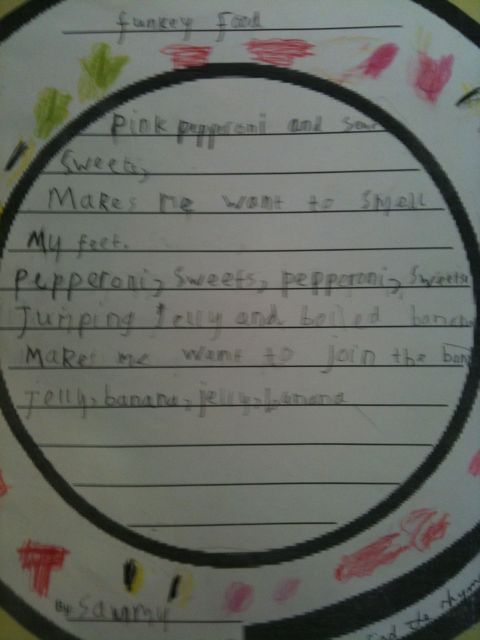 funkey food
Pink pepperoni and sour
sweets,
Makes me want to smell
My feet.
pepperoni, sweets, pepperoni, sweets
Jumping jelly and boiled banana
Makes me want to join the
jelly, banana, jelly, banana
By Sammy
the rhyme